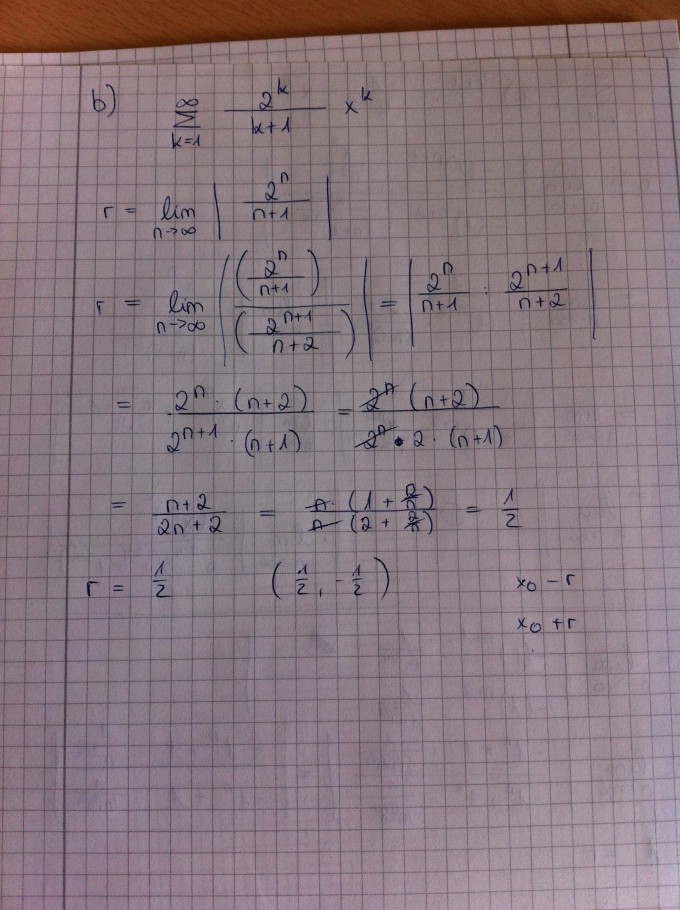 b) ∞ ∑ k=1 2^k/(k+1) x^k
r = lim n→∞ | 2^n/(n+1) |
r = lim n→∞ | (2^n/(n+1)) / (2^(n+1)/(n+2)) | = | 2^n/(n+1) : 2^(n+1)/(n+2) |
= 2^n · (n+2) / 2^(n+1) · (n+1) = 2^n (n+2) / 2^n · 2 · (n+1)
= n+2 / 2n+2 = n · (1 + 2/n) / n (2 + 2/n) = 1/2
r = 1/2 (1/2, -1/2) x₀ - r
x₀ + r